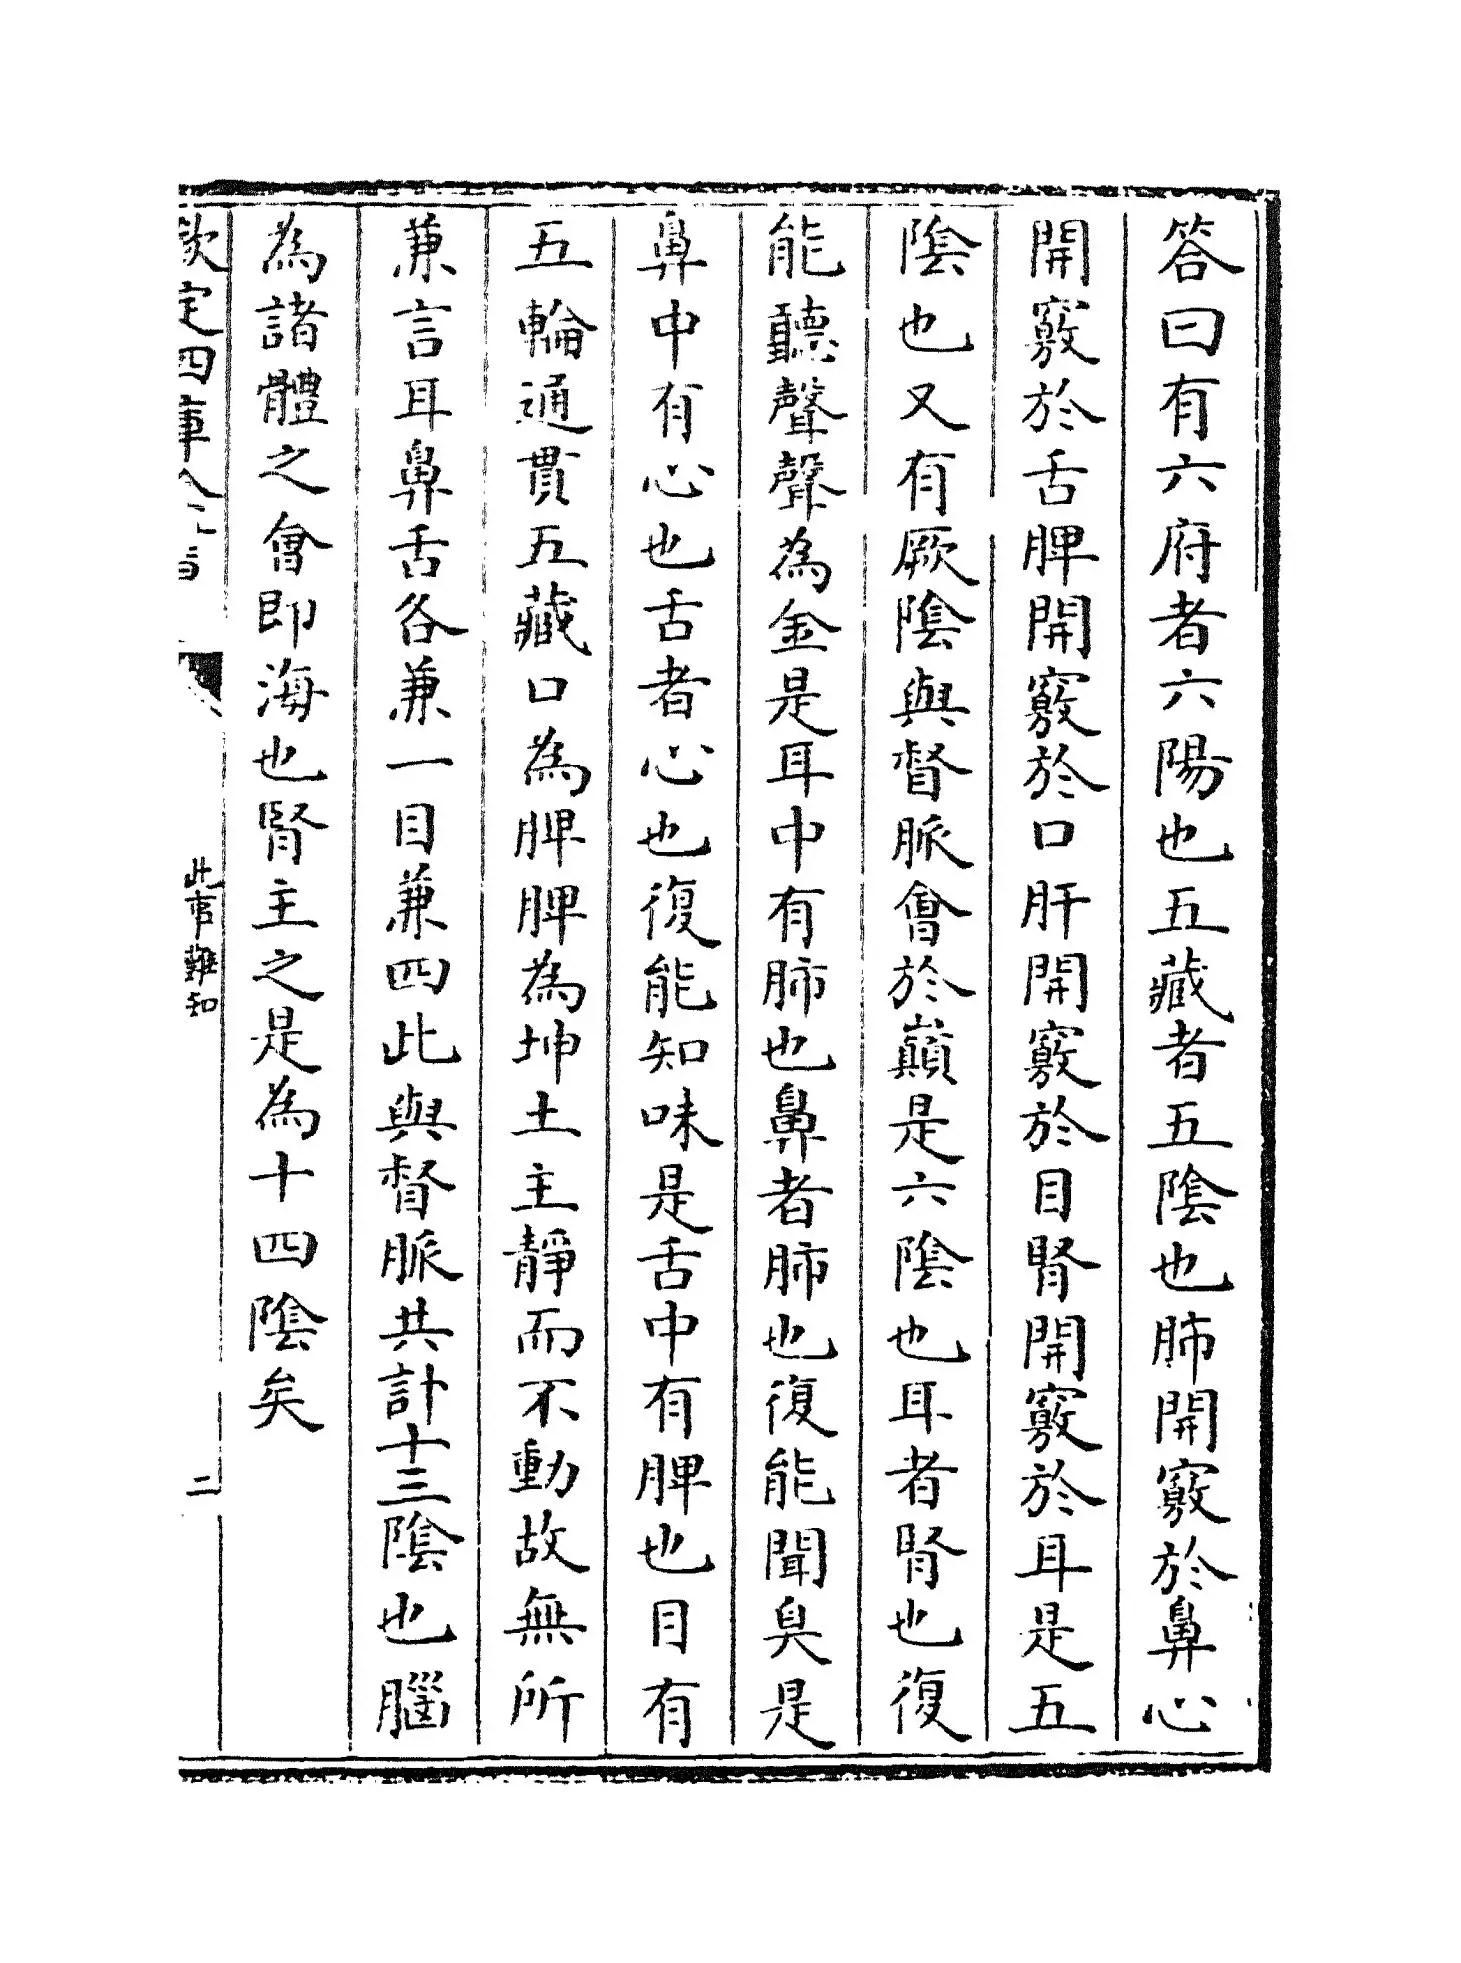 答曰有六府者六陽也五藏者五陰也肺開竅於鼻心
開竅於舌脾開竅於口肝開竅於目腎開竅於耳是五
陰也又有厥陰與督脈會於巔是六陰也耳者腎也復
能聽聲聲為金是耳中有肺也鼻者肺也復能聞臭是
鼻中有心也舌者心也復能知味是舌中有脾也目有
五輪通貫五藏口為脾脾為坤土主靜而不動故無所
兼言耳鼻舌各兼一目兼四此與督脈共計十三陰也腦
為諸體之會即海也腎主之是為十四陰矣
欽定四庫全書
此事難知
二